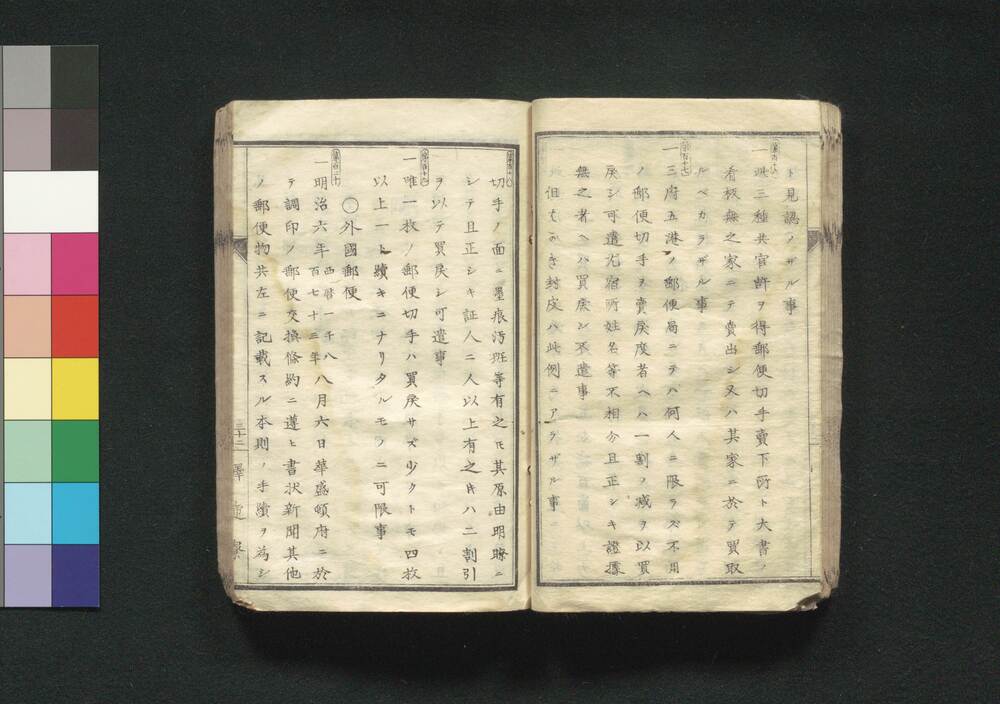 ト見認ノザル事
第百十六
一此三種共官許ヲ得郵便切手賣下所ト大書ノ
看板無之家ニテ賣出シ又ハ其家ニ於テ買取
ルベカラザル事
第百十七
一三府五港ノ郵便局ニテハ何人ニ限ラズ不用
ノ郵便切手ヲ賣戻度者ヘハ一割ノ減ヲ以買
戻シ可遣尤宿所姓名等不相分且正シキ證據
無之者ヘハ買戻シ不遣事
但はがき封皮ハ此例ニアラザル事
第百十八
切手ノ面ニ墨痕汚斑等有之モ其原由明瞭ニ
シテ且正シキ証人二人以上有之片ハ二割引
ヲ以テ買戻シ可遣事
第百十九
一唯一枚ノ郵便切手ハ買戻サズ少クトモ四枚
以上一ト續キニナリタルモノニ可限事
〇外國郵便
第百二十
一明治六年西暦一千八百七十三年八月六日華盛頓府ニ於
テ調印ノ郵便交換條約ニ遵ヒ書状新聞其他
ノ郵便物共左ニ記載スル本則ノ手續ヲ為シ
三十二
驛逓寮